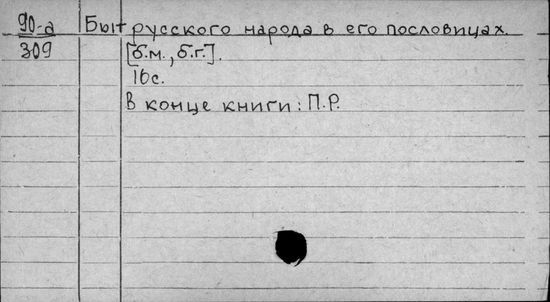 90-а Быт русского народа в его пословицах.
309 [б.м., б.г].
16с.
В конце книги: П.Р.